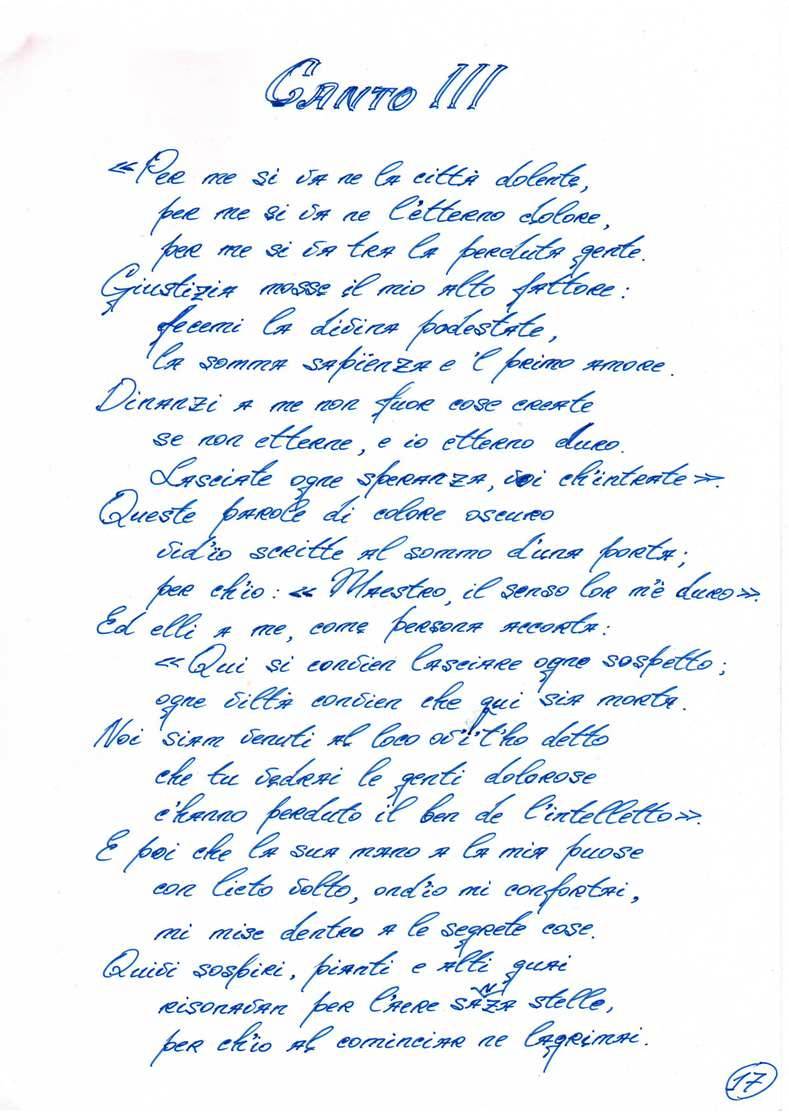 Canto III
«Per me si va ne la città dolente,
per me si va ne l'etterno dolore,
per me si va tra la perduta gente.
Giustizia mosse il mio alto fattore:
fecemi la divina podestate,
la somma sapïenza e 'l primo amore.
Dinanzi a me non fuor cose create
se non etterne, e io etterno duro.
Lasciate ogne speranza, voi ch'intrate».
Queste parole di colore oscuro
vid'ïo scritte al sommo d'una porta;
per ch'io: «Maestro, il senso lor m'è duro».
Ed elli a me, come persona accorta:
«Qui si convien lasciare ogne sospetto;
ogne viltà convien che qui sia morta.
Noi siam venuti al loco ov'i't'ho detto
che tu vedrai le genti dolorose
c'hanno perduto il ben de l'intelletto».
E poi che la sua mano a la mia puose
con lieto volto, ond'io mi confortai,
mi mise dentro a le segrete cose.
Quivi sospiri, pianti e alti guai
risonavan per l'aere sanza stelle,
per ch'io al cominciar ne lagrimai.
17